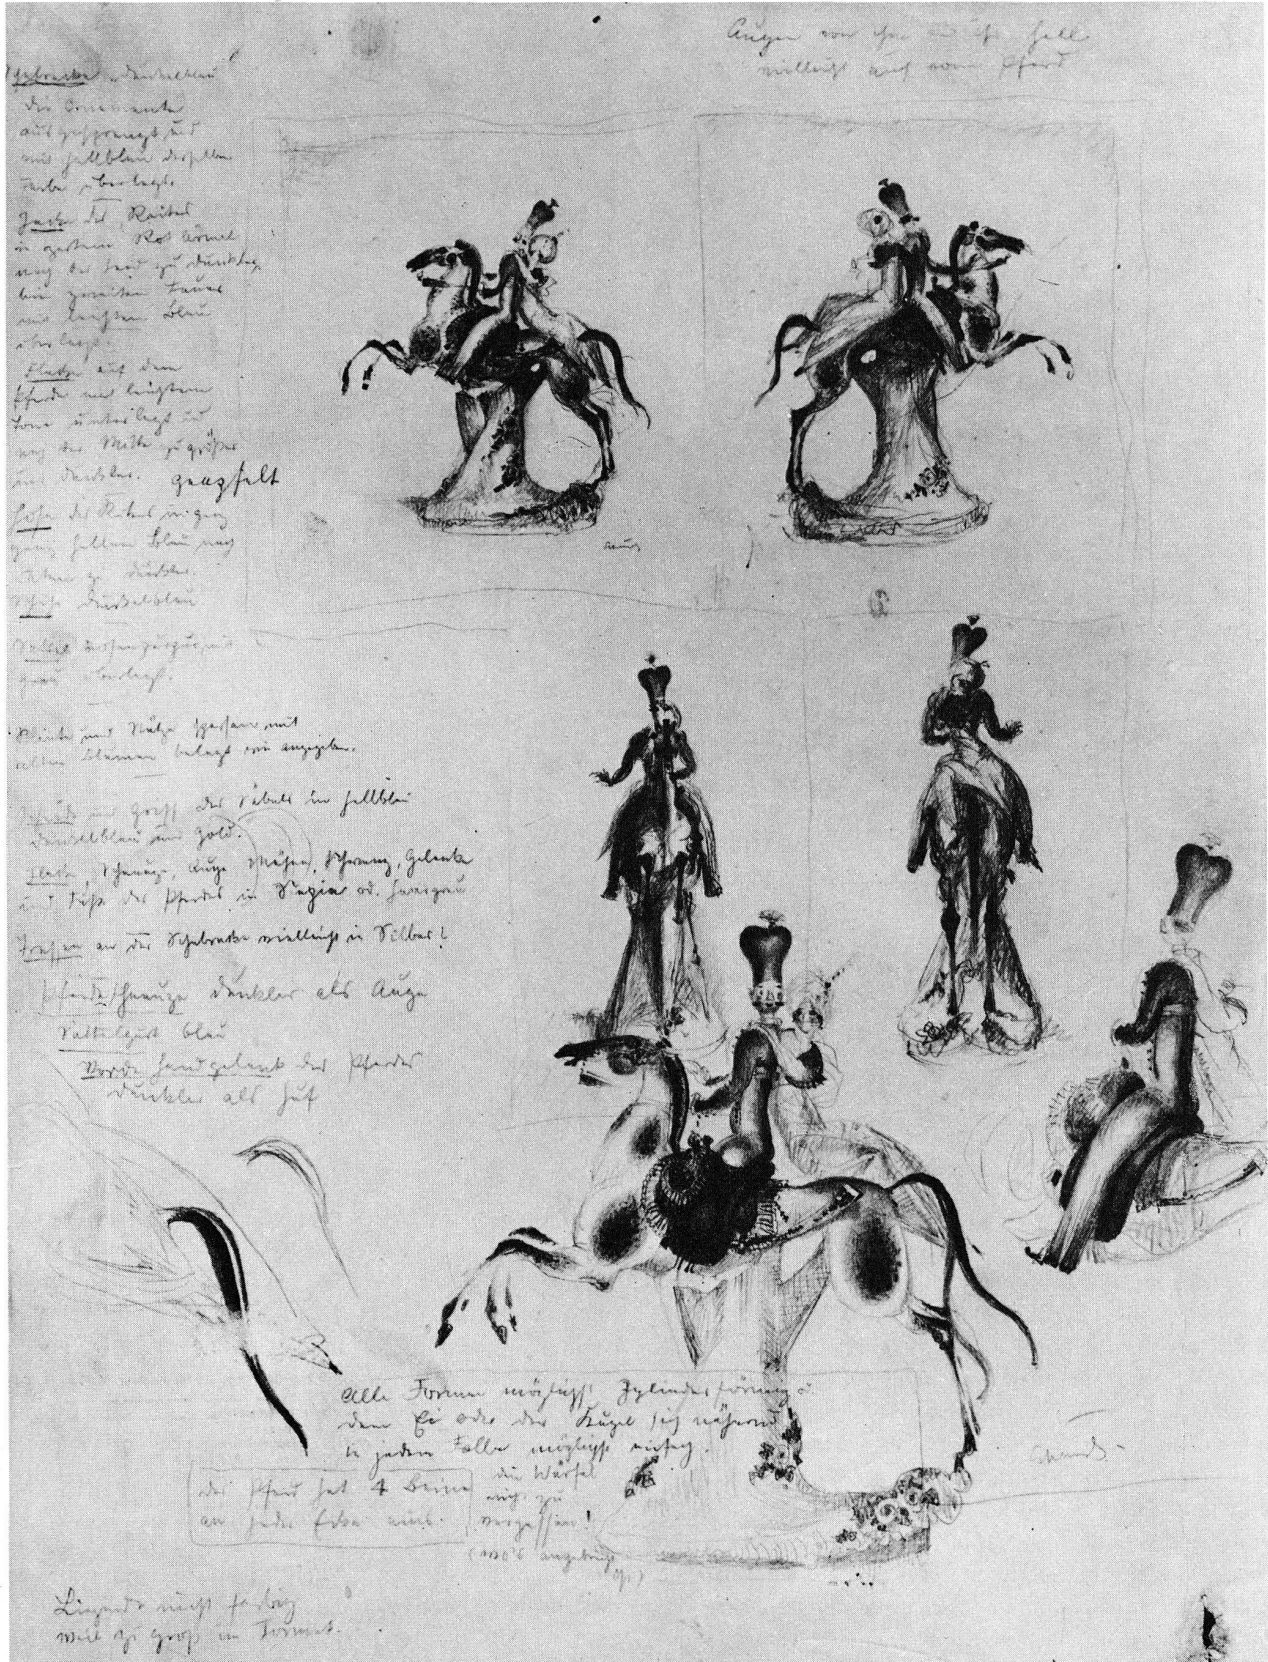 Augen von ihm und ihr hell
vielleicht auch vom Pferd
Schabracke dunkelblau
die Ornamente
ausgesprengt und
mit hellblau derselben
Farbe überlegt.
Jacke des Reiters
in zartem Rot Ärmel
nach der Hand zu dunkler
beim zweiten Feuer
mit leichtem Blau
überlegt.
Flecke auf dem
Pferde mit leichtem
Tone unterlegt
nach der Mitte zu größer
und dunkler. geapfelt
Hose des Reiters in ganz
ganz hellem Blau nach
unten zu dunkler.
Schuhe dunkelblau
Sattel
grau überlegt.
und Mütze mit
Blumen belegt wie angegeben.
und Griff des Säbels in hellblau
dunkelblau und Gold.
Flecke, Schnauze, Auge Mähne, Schwanz, Gelenke
und Füße des Pferdes in Sepia od.
an der Schabracke vielleicht in Silber!
Pferdeschnauze dunkler als Auge
Sattelgurt blau
Vorderhandgelenk des Pferdes
dunkler als Huf
Alle Formen möglichst Zylinderförmig o.
dem Ei oder der Kugel sich nähernd
in jedem Falle möglichst einfach.
die Würfel
nicht zu
vergessen!
das Pferd hat 4 Beine
an jeder Ecke eins.
(wo's angebracht
ist)
nicht farbig
weil zu groß im Format.